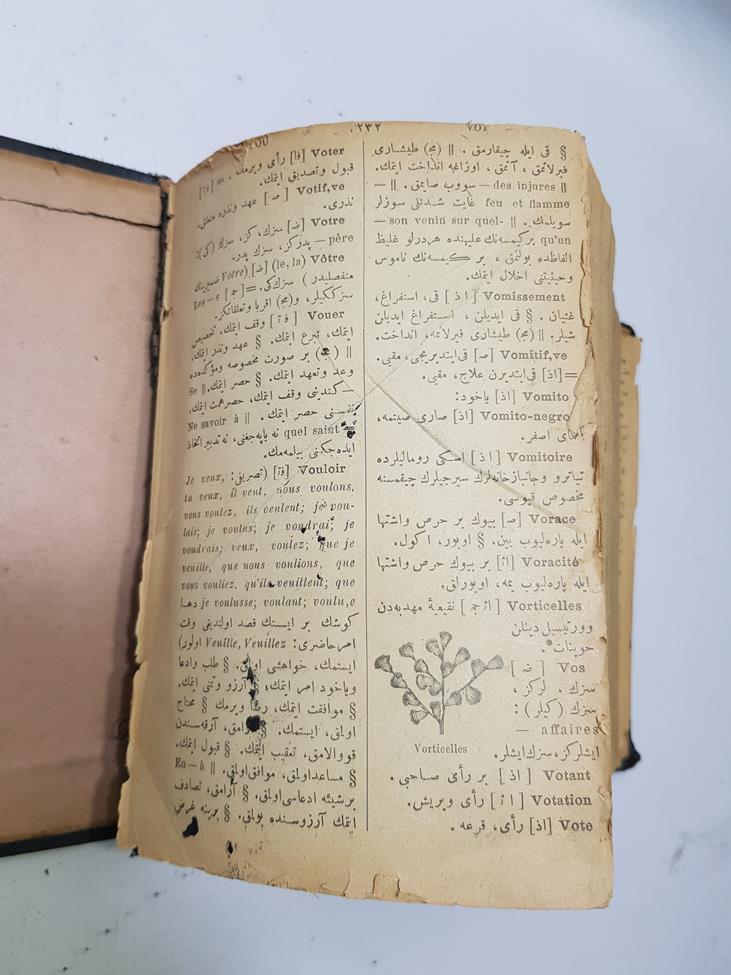 ٢٣٢
VOT
§ قی ایله چیقارمق . || (مج) طیشاری
فیرلاتمق ، آتمق ، اوزاغه انداخت ایتمك.
|| des injures — سووب صایمق . || —
feu et flamme غایت شدتلی سوزلر
سویلمك . || son venin sur quel-—
qu'un برکیمسه‌نك علیهنده هردرلو غلیظ
الفاظده بولنمق ، بر کیمسه‌نك ناموس
وحیثیتنی اخلال ایتمك.
Vomissement [اذ] قی، استفراغ،
غثیان . § قی ایدیلن ، استفراغ ایدیلن
شیلر. || (مج) طیشاری فیرلاتمه، انداخت.
Vomitif,ve [ص] قی ایتدیریجی، مقیی.
=[اذ] قی ایتدیرن علاج، مقیی.
Vomito [اذ] یاخود:
Vomito-negro [اذ] صاری صیتمه،
حمای اصفر.
Vomitoire [اذ] اسکی رومالیلرده
تیاترو وجانبازخانه‌لرك سیرجیلرك چیقمسنه
مخصوص قپوسی.
Vorace [ص] بیوك بر حرص واشتها
ایله پاره‌لیوب یین. § اوبور، اكول.
Voracité [اث] بر بیوك حرص واشتها
ایله پاره‌لیوب یمه، اوبورلق.
Vorticelles [اث جم] نقیعیهٔ مهدبه‌دن
وورتیسیل دینلن
حوینات.
Vos [ضه]
سزك ، لرکز ،
سزك (کیلر) :
— affaires
ایشلرکز، سزك ایشلر.
Vorticelles
Votant [اذ] بر رأی صاحبی .
Votation [اث] رأی ویریش.
Vote [اذ] رأی، قرعه .
Voter [فا] رأی ویرمك . = [فآ]
قبول وتصدیق ایتمك.
Votif,ve [ص] عهد ونذره متعلق،
نذری.
Votre [ضه] سزك، کز، سزك (کی):
père — پدرکز، سزك پدر.
Vôtre (le, la) [ضه] (Votre ضمیرینك
منفصلیدر) سزك‌کی.=[جم] Les—s
سزككیلر، و(مج) اقربا وتعلقاتکز.
Vouer [فآ] وقف ایتمك، تخصیص
ایتمك، تبرع ایتمك. § عهد ونذر ایتمك.
|| (مج) بر صورت مخصوصه ومؤکده‌ده
وعد وتعهد ایتمك. § حصر ایتمك. || Se
—کندینی وقف ایتمك، حصر همت ایتمك،
نفسنی حصر ایتمك. || Ne savoir à
quel saint — نه یاپه‌جغنی، نه تدبیر اتخاذ
ایده‌جکنی بیلمه‌مك.
Vouloir [فآ] (تصریفی: Je veux,
tu veux, il veut, nous voulons,
vous voulez, ils veulent; je vou-
lais; je voulus; je voudrai; je
voudrais; veux, voulez; que je
veuille, que nous voulions, que
vous vouliez, qu'ils veuillent; que
je voulusse; voulant; voulu,e دها
کوشك بر ایستك قصد اولندیغی وقت
امرحاضری: Veuille, Veuillez اولور)
ایستمك، خواهشی اولمق. § طلب وادعا
ویاخود امر ایتمك، آرزو وتمنی ایتمك.
§ موافقت ایتمك، رضا ویرمك § محتاج
اولمق، ایستمك. § آرامق، آرقه‌سندن
قووالامق، تعقیب ایتمك. § قبول ایتمك.
§ مساعد اولمق، موافق اولمق. || En — à
برشیئه ادعاسی اولمق. § آرامق، تصادف
ایتمك آرزوسنده بولنمق. § برینه غرض